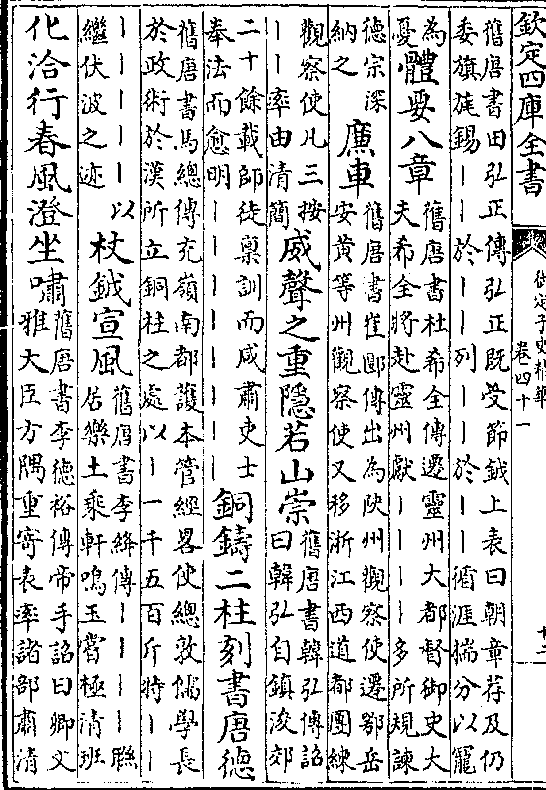 欽定四庫全書
御定子史精華
卷四十一
十二
舊唐書田弘正傳弘正既受節鉞上表曰朝章荐及仍
委旗旄錫||於||列||於||循涯揣分以寵
為
憂
體要八章
舊唐書杜希全傳遷靈州大都督御史大
夫希全將赴靈州獻||||多所規諫
德宗深
納之
廉車
舊唐書崔郾傳出為陝州觀察使遷鄂岳
安黃等州觀察使又移浙江西道都團練
觀察使凡三按
||率由清簡
威聲之重隱若山崇
舊唐書韓弘傳詔
曰韓弘自鎮浚郊
二十餘載師徒稟訓而咸肅吏士
奉法而愈明||||||||
銅鑄二柱刻書唐德
舊唐書馬總傳充嶺南都護本管經畧使總敦儒學長
於政術於漢所立銅柱之處以|一千五百斤特||
|||||以
繼伏波之迹
杖鉞宣風
舊唐書李絳傳||||聯
居樂土乘軒鳴玉嘗極清班
化洽行春風澄坐嘯
舊唐書李德裕傳帝手詔曰卿文
雅大臣方隅重寄表率諸部肅清